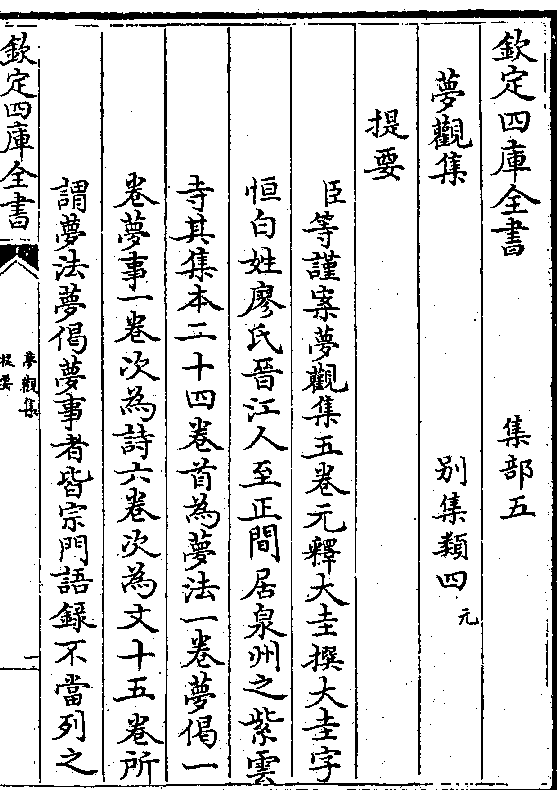 欽定四庫全書　集部五
夢觀集　別集類四元
提要
臣等謹案夢觀集五卷元釋大圭撰大圭字
恒白姓廖氏晉江人至正間居泉州之紫雲
寺其集本二十四卷首為夢法一卷夢偈一
卷夢事一卷次為詩六卷次為文十五卷所
謂夢法夢偈夢事者皆宗門語録不當列之
欽定四庫全書
夢觀集
提要
一